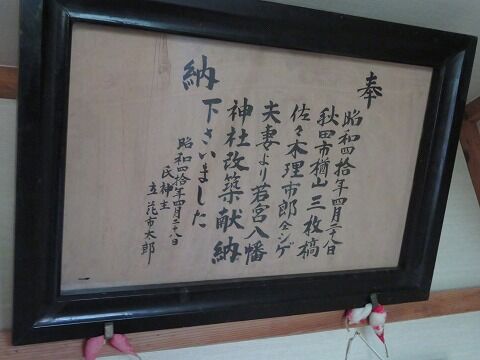 奉
納
昭和四拾年四月二八日
秋田市楢山三枚橋
佐々木理市郎仝シゲ
夫妻より若宮八幡
神社改築献納
下さいました
昭和四拾年四月二八日
氏神主
立花市太郎